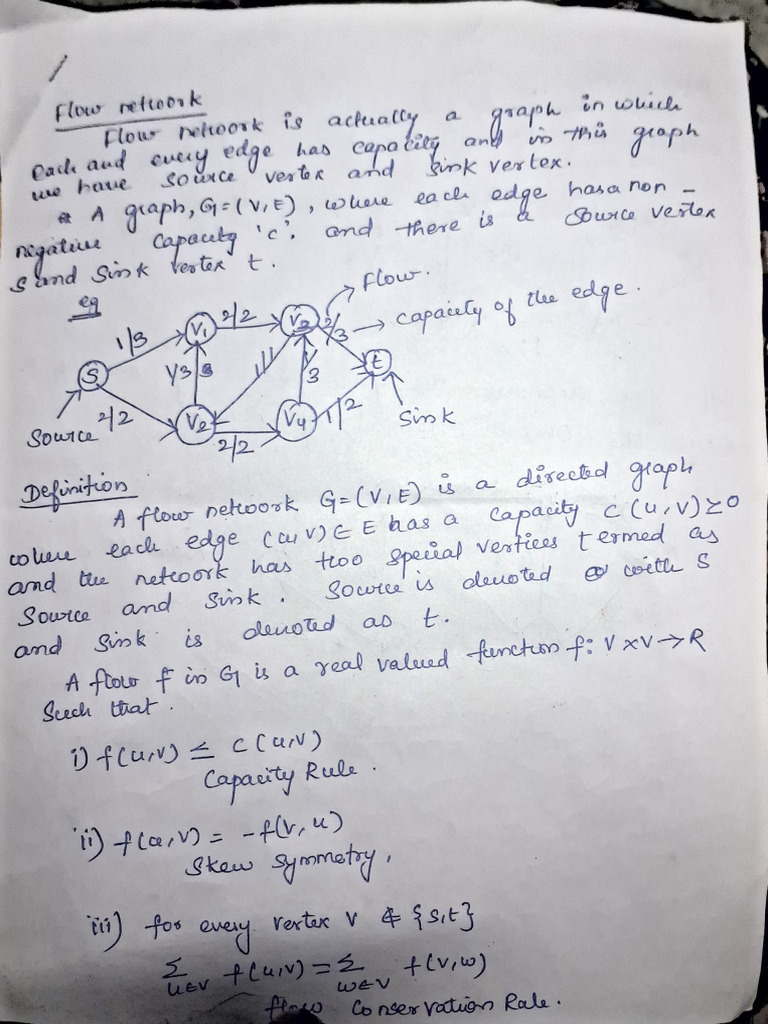 Flow network
Flow network is actually a graph in which
each and every edge has capacity and in this graph
we have source vertex and sink vertex.
* A graph, G=(V,E), where each edge has a non-
negative capacity 'c'. and there is a source vertex
s and sink vertex t.
eg
Flow.
2/2
V1
V3
2/3 → capacity of the edge.
1/3
S
1/3
1/1
1/3
t
2/2
V2
V4
1/2
Source
2/2
Sink
Definition
A flow network G=(V,E) is a directed graph
where each edge (u,v)∈E has a capacity c(u,v)≥0
and the network has two special vertices termed as
Source and sink. Source is denoted with S
and sink is denoted as t.
A flow f in G is a real valued function f: V×V→R
Such that.
i) f(u,v) ≤ c(u,v)
Capacity Rule.
ii) f(u,v) = -f(v,u)
Skew symmetry,
iii) for every vertex v ∉ {s,t}
Σ f(u,v) = Σ f(v,w)
u∈V w∈V
flow Conservation Rule.